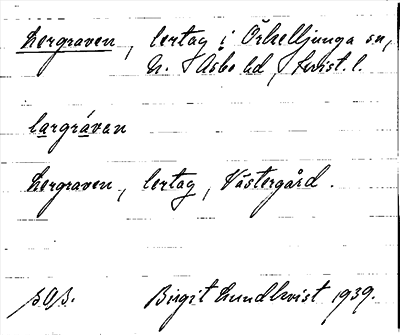 Lergraven, lertag i Örkelljunga sn,
N. Åsbo hd, Krist. l.
largrávan
Lergraven, lertag, Västergård.
s. 0/s.
Birgit Lundkvist 1939.